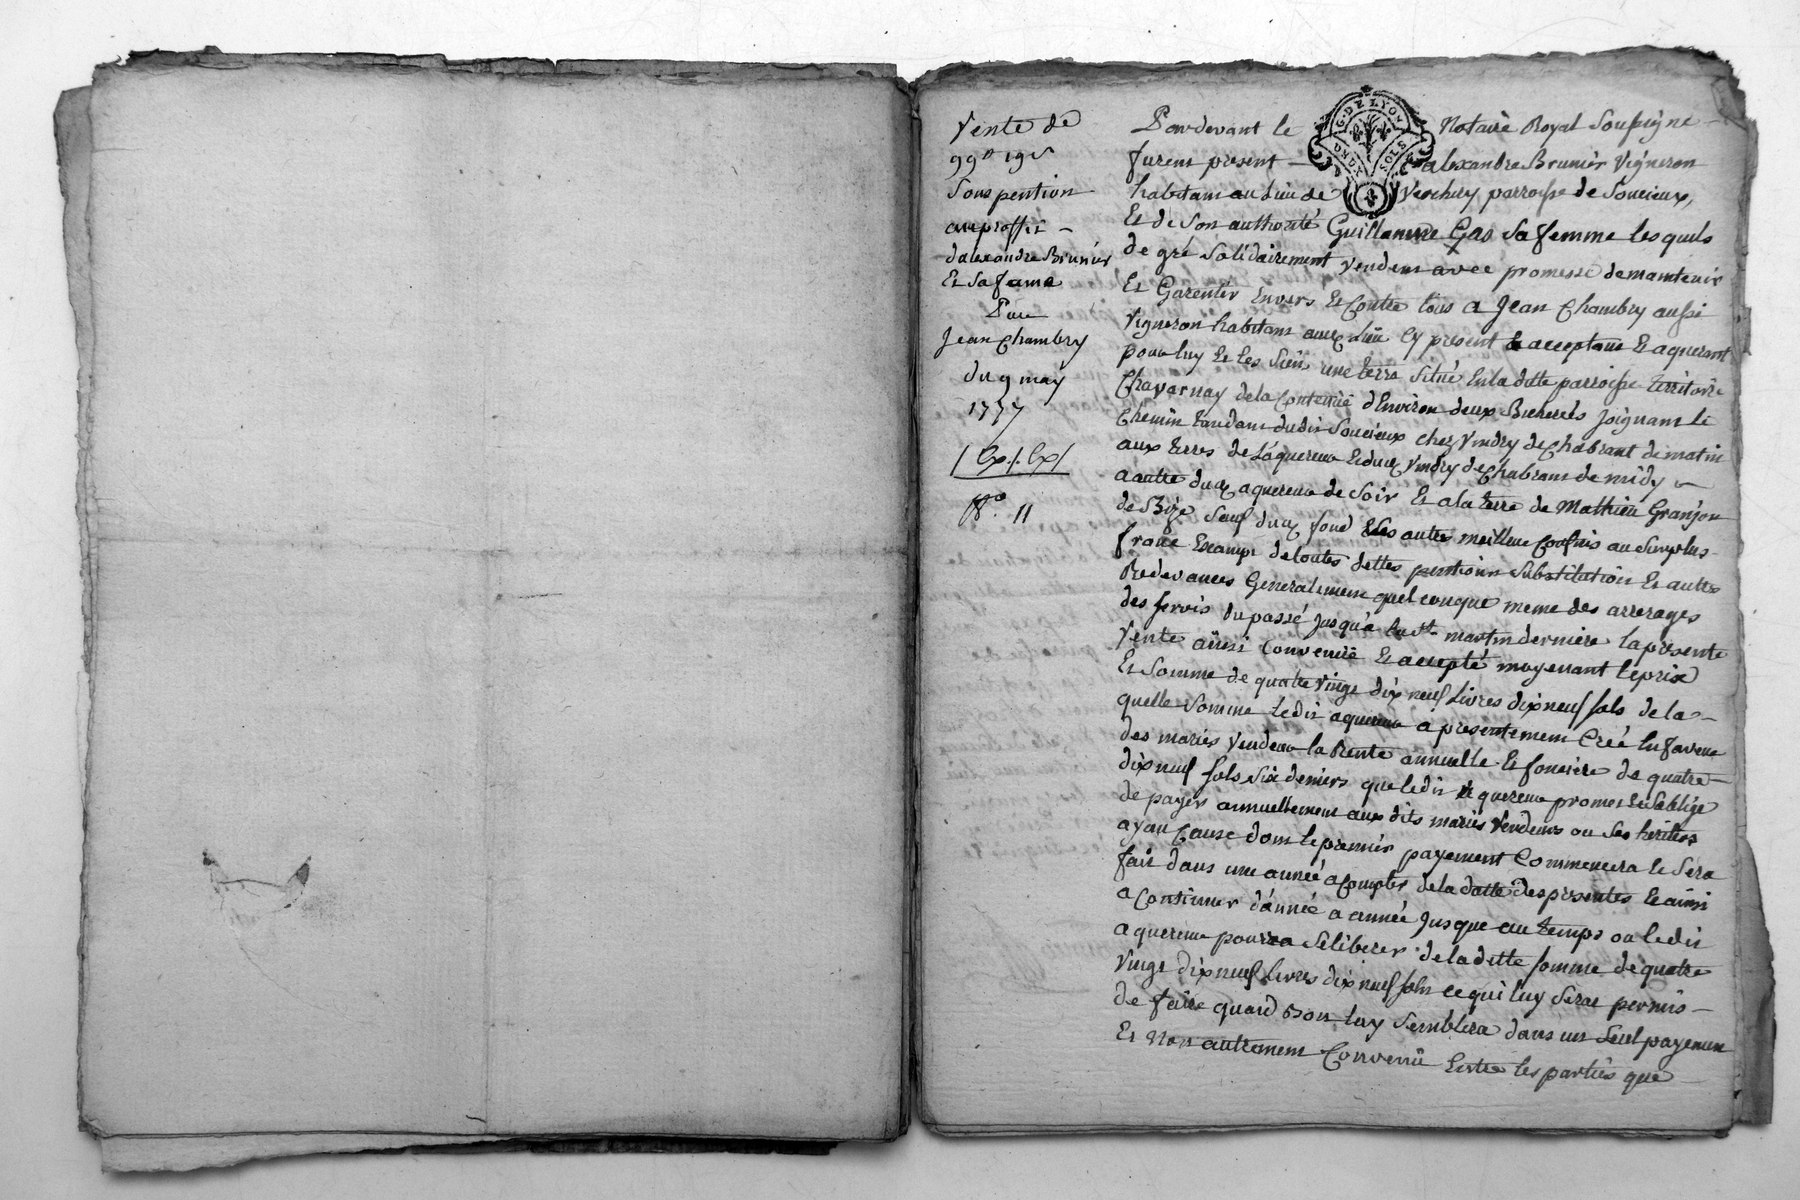 Vente de
99ᴸ 19ˢ
Sous pention
au proffit
d'alexandre Brunier
Et Sa fame
Par
Jean Chambry
du 9 may
1777
Exp. Ex
fº. 11
G. DE LYON
UN
SOLS
Pardevant le Notaire Royal Soussigne
furent present alexandre Brunier Vigneron
habitant au Lieu de Verchery parroisse de Soucieux,
Et de Son authorité Guillaumine Gas Sa femme lesquels
de gré Solidairement Vendent avec promesse de maintenir
Et Garentir Envers Et Contre tous a Jean Chambry aussi
Vigneron habitant audit Lieu Cy present Et acceptant Et aquerant
pour luy Et les Siens une terre Situé En la ditte parroisse territoire
Chavarnay de la Contenue d'Environ deux Bicherés Joignant le
Chemin tandant dudit Soucieux chez Vindry de Chabrant de matin
aux terres de L'aquereur Et dud. Vindry de Chabrant de midy
a autre dud. aquereur de Soir Et a la terre de Mathieu Granjon
de Bize Sauf dud. fond Ses autres meilleur Confins au Surplus
franc Exampt de toutes dettes pentions Substitution Et autres
Redevances Generalement quelconque meme des arrerages
des Servis du passé Jusqu'a la St. martin derniere la presente
Vente ainsi Convenue Et accepté moyenant le prix
Et Somme de quatre Vingt dix neuf Livres dix neuf sols de la
quelle Somme Ledit aquereur a presentement Créé En faveur
des mariés Vendeur la Rente annuelle Et fonciere de quatre
dix neuf sols Six deniers que ledit aquereur promet Et S'oblige
de payer annuellement aux dits mariés Vendeurs ou Ses heritiers
ayan Cause dont le premier payement Commencera Et Sera
fait dans une année a Compter de la datte des presentes Et ainsi
a Continuer d'année a année Jusque au temps ou ledit
aquereur pourra Se liberer de la ditte somme de quatre
Vingt dix neuf Livres dix neuf sols ce qui luy Sera permis
de faire quand bon luy Semblera dans un Seul payement
Et Non autrement Convenu Entre les parties que